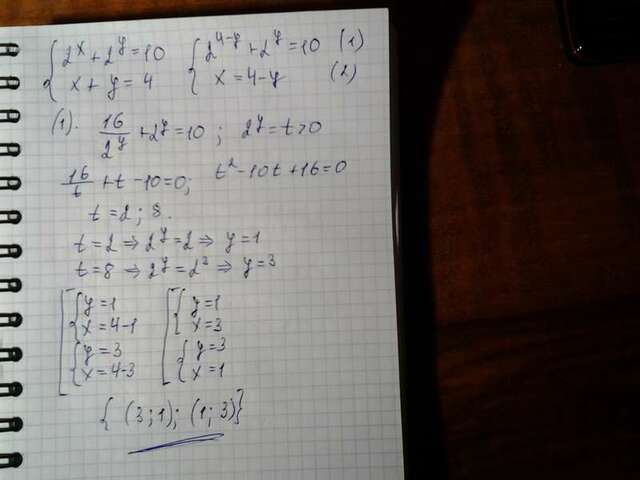 { 2^x + 2^y = 10   { 2^(4-y) + 2^y = 10 (1)
{ x + y = 4   { x = 4-y (2)
(1). 16/2^y + 2^y = 10 ; 2^y = t > 0
16/t + t - 10 = 0; t² - 10t + 16 = 0
t = 2 ; 8.
t = 2 ⇒ 2^y = 2 ⇒ y = 1
t = 8 ⇒ 2^y = 2³ ⇒ y = 3
[ { y = 1   [ { y = 1
{ x = 4-1   { x = 3
{ y = 3   { y = 3
{ x = 4-3   { x = 1
{ (3;1); (1;3) }